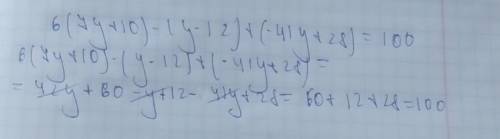 6(7y+10)-(y-12)+(-41y+28)=100
6(7y+10)-(y-12)+(-41y+28)=
= 42y+60-y+12-41y+28=60+12+28=100